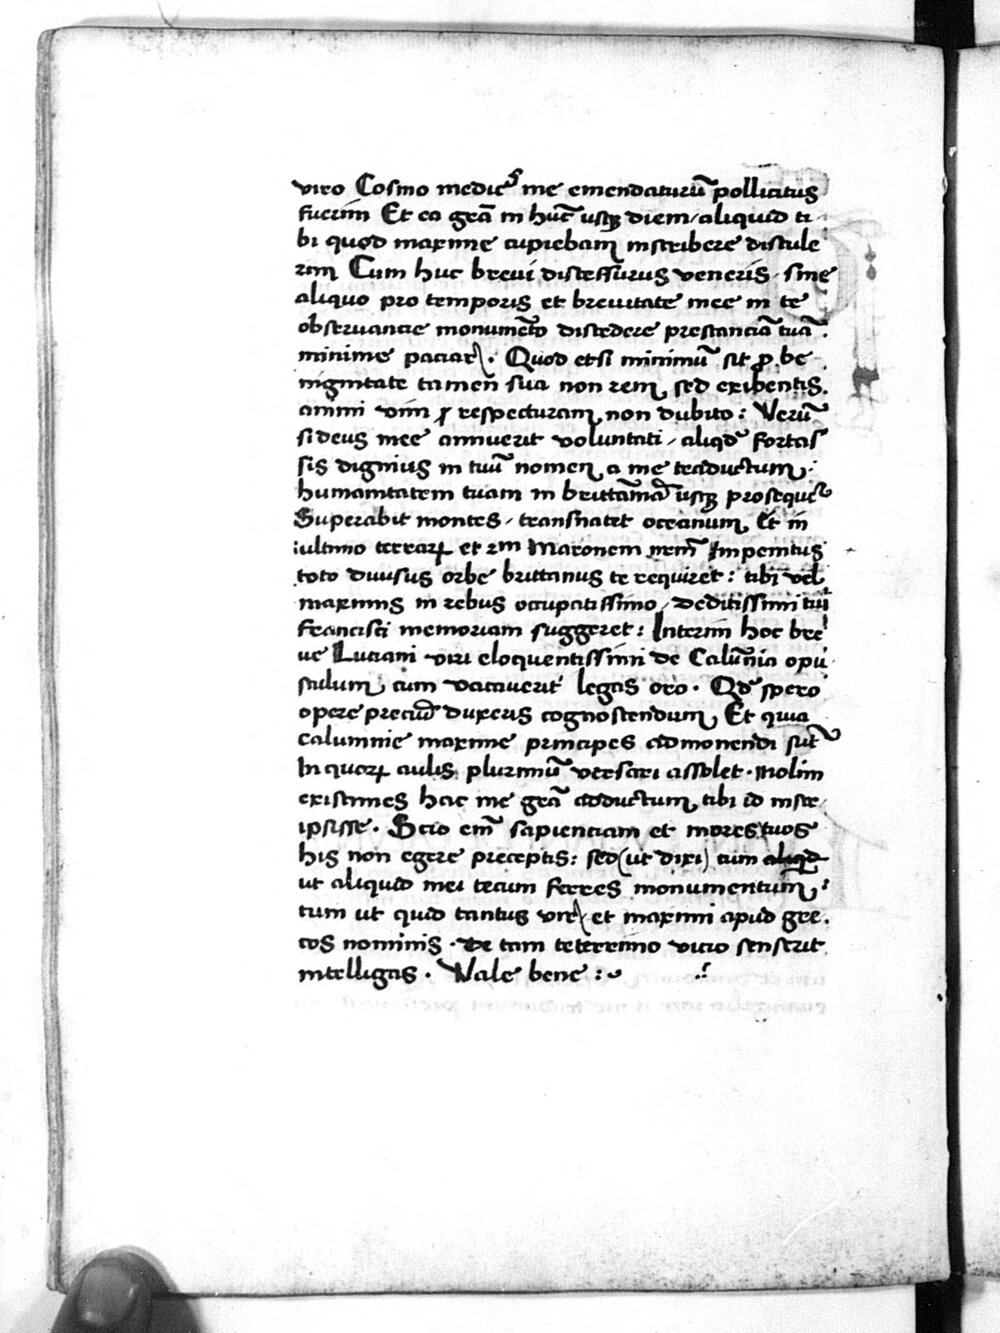 viro Cosmo medicꝰ me emendaturū pollicitus
fuerim Et ea grā in hūc usqꝫ diem / aliquid ti
bi quod maxime cupiebam inscribere distule
rim Cum huc brevi discessurus veneris . sine
aliquo pro temporis et brevitate mee in te
observancie monumēto discedere prestanciā tuā :
minime paciar . Quod etsi minimū sit ꝓ be
nignitate tamen sua non rem sed exibentis
animi vim respecturam non dubito : Verū
si deus mee annuerit voluntati / aliqđ fortas
sis dignius in tuū nomen a me traductum :
humanitatem tuam in brittāniā usqꝫ prosequet᷑
Superabit montes / transnatet oceanum Et in
ultimo terraꝝ et Maronem Impenitus
toto divisus orbe brittanus te requiret : tibi vel
maximis in rebus occupatissimo / deditissimi tui
francisci memoriam suggeret : Interim hoc bre
ve Luciani viri eloquentissimi de Calūnia opu
sculum cum vacaverit legas oro . Qđ spero
opere preciū duxeris cognoscendum Et quia
calumnie maxime principes admonendi sūt
In quoꝝ aulis plurimū versari assolet . nolim
existimes hac me grā adductum tibi id inscr
ipsisse . Scio em̄ sapienciam et mores tuos
his non egere preceptis : sed (ut dixi) tum aliqđ
ut aliquid mei tecum ferres monumentum :
tum ut quid tantus vir et maximi apud gre
cos nominis . de tam teterrimo vicio senserit
intelligas . Vale bene :